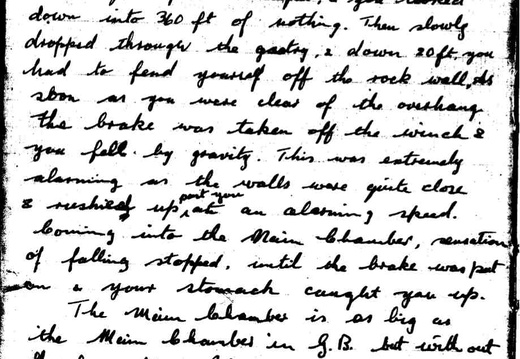 down into 360 ft of nothing. Then slowly
dropped through the gantry, & down 20ft, you
had to fend yourself off the rock wall, As
soon as you were clear of the overhang
the brake was taken off the winch &
you fell by gravity. This was extremely
alarming as the walls were quite close
& rushing up past you at an alarming speed.
Coming into the Main Chamber, sensation
of falling stopped, until the brake was put
on & your stomach caught you up.
The Main Chamber is as big as
the Main Chamber in G.B. but without